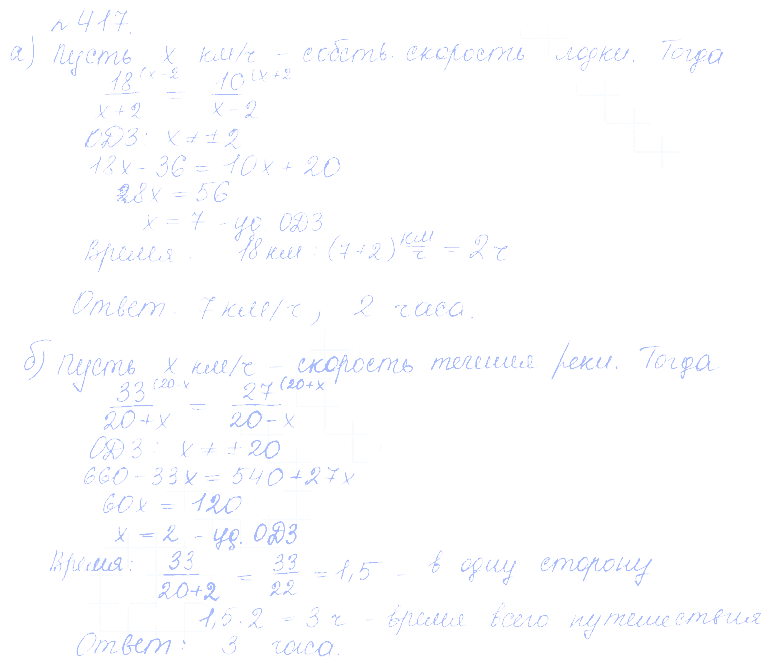 № 417.
а) Пусть x км/ч - собств. скорость лодки. Тогда
18(x-2 / x+2 = 10(x+2 / x-2
ОДЗ: x ≠ ±2
18x - 36 = 10x + 20
28x = 56
x = 7 - уд. ОДЗ
Время: 18 км : (7+2) км/ч = 2 ч
Ответ: 7 км/ч, 2 часа.
б) Пусть x км/ч - скорость течения реки. Тогда
33(20-x / 20+x = 27(20+x / 20-x
ОДЗ: x ≠ ±20
660 - 33x = 540 + 27x
60x = 120
x = 2 - уд. ОДЗ
Время: 33 / 20+2 = 33 / 22 = 1,5 - в одну сторону
1,5 · 2 = 3 ч - время всего путешествия
Ответ: 3 часа.